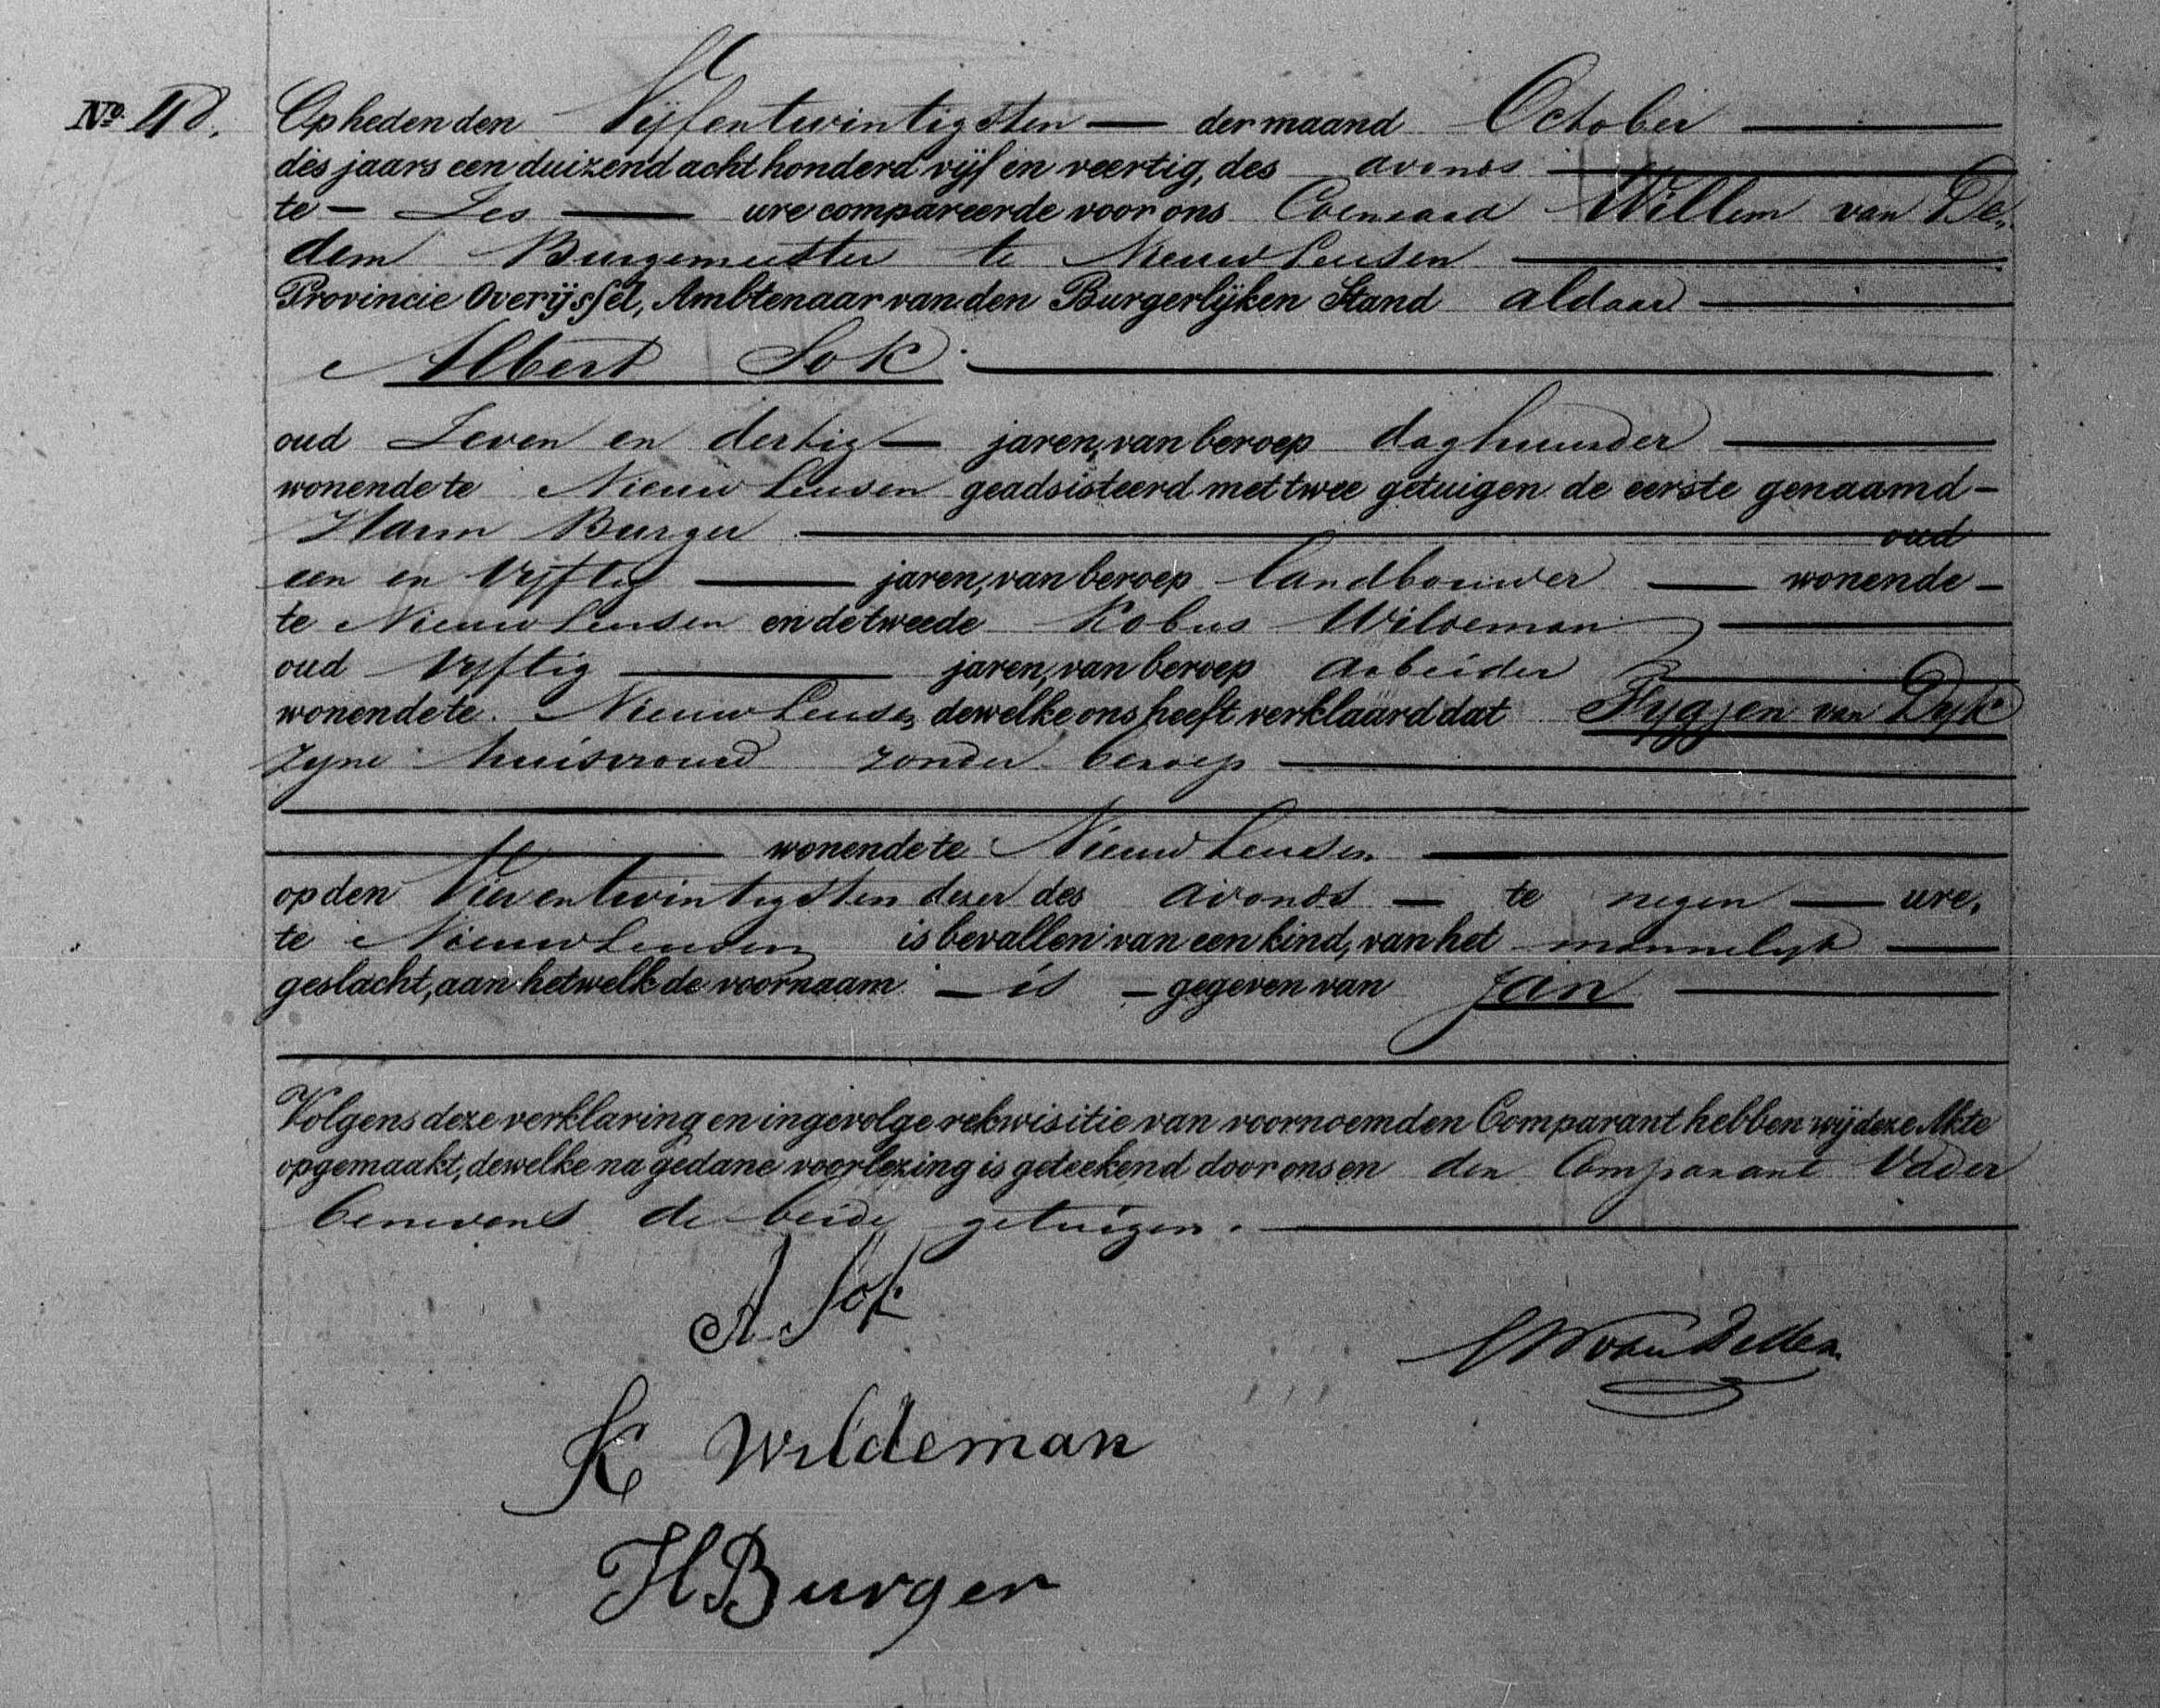 No. 48. Op heden den Vijfentwintigsten — der maand October —
des jaars een duizend acht honderd vijf en veertig, des avonds —
te — Zes — ure compareerde voor ons Coenraad Willem van De-
dem Burgemeester te Nieuwleusen —
Provincie Overijssel, Ambtenaar van den Burgerlijken Stand aldaar —
Albert Sok —
oud Zeven en dertig — jaren, van beroep daghuurder —
wonende te Nieuwleusen geadsisteerd met twee getuigen de eerste genaamd —
Harm Burger — oud
een en Vijftig — jaren, van beroep landbouwer — wonende —
te Nieuwleusen en de tweede Kobus Wildeman —
oud Vijftig — jaren, van beroep arbeider —
wonende te Nieuwleusen, dewelke ons heeft verklaard dat Fygjen van Dyk
zyne huisvrouw zonder beroep —
— wonende te Nieuwleusen —
op den Vierentwintigsten dezer des avonds — te negen — ure,
te Nieuwleusen is bevallen van een kind, van het mannelyk —
geslacht, aan hetwelk de voornaam — is — gegeven van Jan —
Volgens deze verklaring en ingevolge rekwisitie van voornoemden Comparant hebben wij deze Akte
opgemaakt, dewelke na gedane voorlezing is geteekend door ons en den Comparant Vader
benevens de beide getuigen. —
A Sok
CW van Dedem
K Wildeman
H Burger